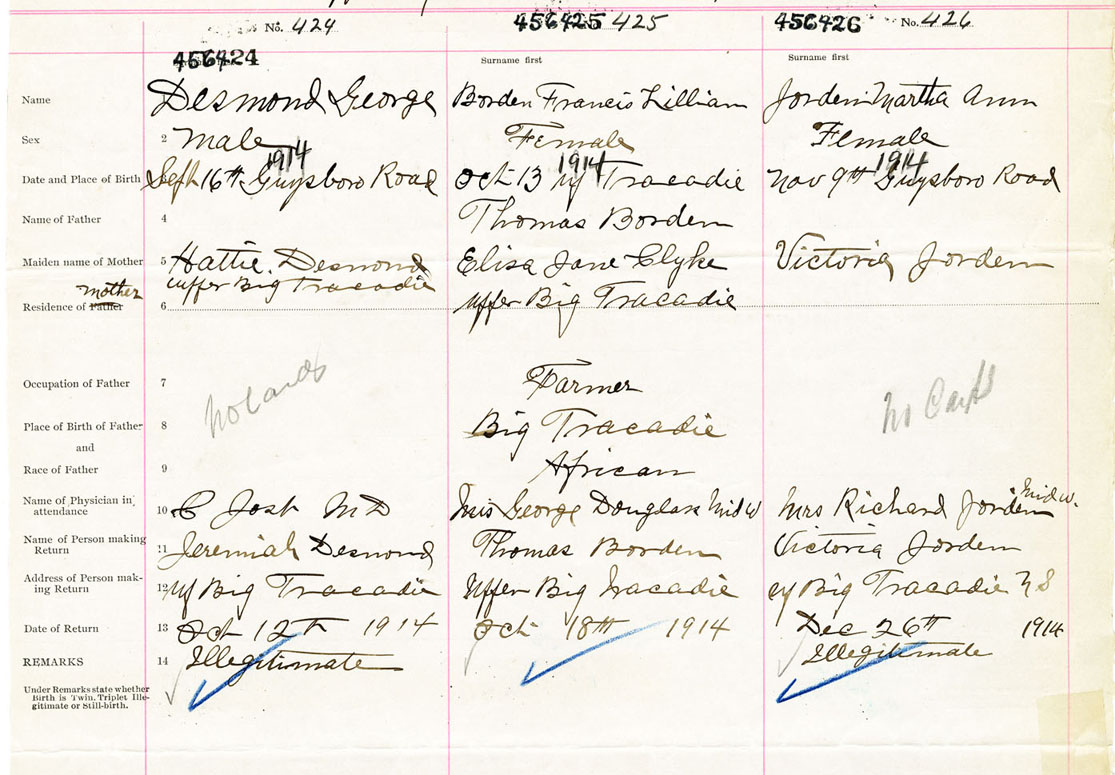 No. 424 456425 425 456426 No. 426
456424 Surname first Surname first
Name Desmond George Borden Francis Lillian Jorden Martha Ann
Sex 2 Male Female Female
1914 1914 1914
Date and Place of Birth Sept 16th Guysboro Road Oct 13 Tracadie Nov 9th Guysboro Road
Name of Father 4 Thomas Borden
Maiden name of Mother 5 Hattie Desmond Elisa Jane Clyke Victoria Jorden
mother upper Big Tracadie
Residence of Father 6 upper Big Tracadie
Occupation of Father 7 Farmer
No Cards No Cards
Place of Birth of Father 8 Big Tracadie
and
Race of Father 9 African
Name of Physician in attendance 10 C Jost MD Mrs George Douglass Mid W Mrs Richard Jorden Mid W.
Name of Person making Return 11 Jeremiah Desmond Thomas Borden Victoria Jorden
Address of Person mak-
ing Return 12 Big Tracadie Upper Big Tracadie Big Tracadie NS
Date of Return 13 Oct 12th 1914 Oct 18th 1914 Dec 26th 1914
REMARKS 14 Illegitimate Illegitimate
Under Remarks state whether
Birth is Twin, Triplet Ille-
gitimate or Still-birth.